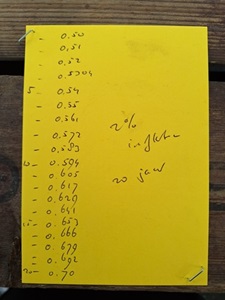 - 0.50
- 0.51
- 0.52
- 0.5304
5 - 0.54
- 0.55
- 0.561
- 0.572
- 0.583
10 - 0.594
- 0.605
- 0.617
- 0.629
- 0.641
15 - 0.653
- 0.666
- 0.679
- 0.692
20 - 0.70
2%
inflatie
20 jaar